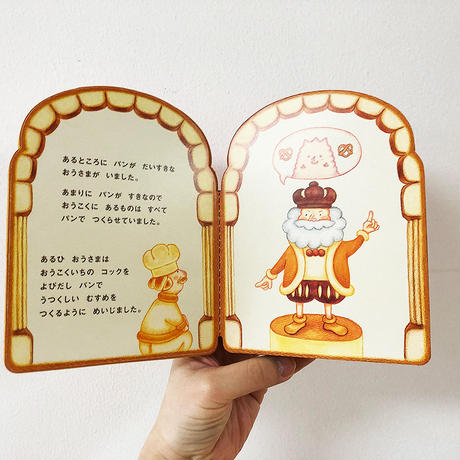 あるところに パンが だいすきな
おうさまが いました。
あまりに パンが すきなので
おうこくに あるものは すべて
パンで つくらせていました。
あるひ おうさまは
おうこくいちの コックを
よびだし パンで
うつくしい むすめを
つくるように めいじました。